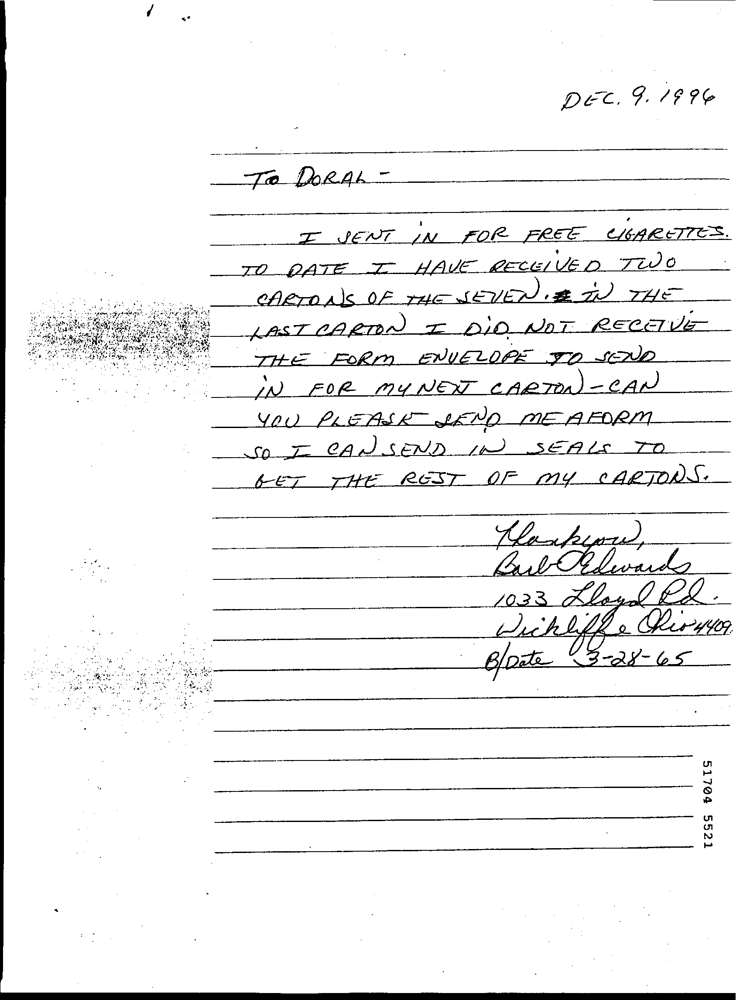 DEC. 9. 1996
To DORAL -
I SENT IN FOR FREE CIGARETTES.
TO DATE I HAVE RECEIVED TWO
CARTONS OF THE SEVEN. IN THE
LAST CARTON I DID NOT RECEIVE
THE FORM ENVELOPE TO SEND
IN FOR MY NEXT CARTON - CAN
YOU PLEASE SEND ME A FORM
SO I CAN SEND IN SEALS TO
GET THE REST OF MY CARTONS.
Thankyou,
Barb Edwards
1033 Lloyd Rd.
Wickliffe Ohio 4409
B/Date 3-28-65
51704 5521